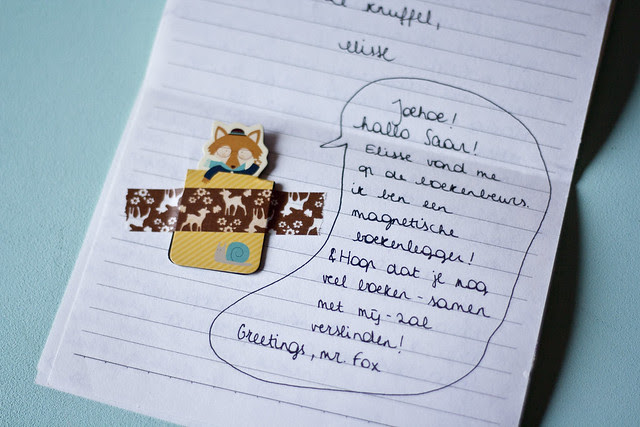 knuffel,
elisse
Joehoe!
hallo Saar!
Elisse vond me
op de boekenbeurs.
ik ben een
magnetische
boekenlegger!
& Hoop dat je nog
veel boeken - samen
met mij - zal
verslinden!
Greetings, mr. Fox